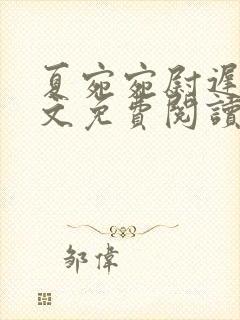 夏宛宛尉遲
文免費閱讀
邹偉